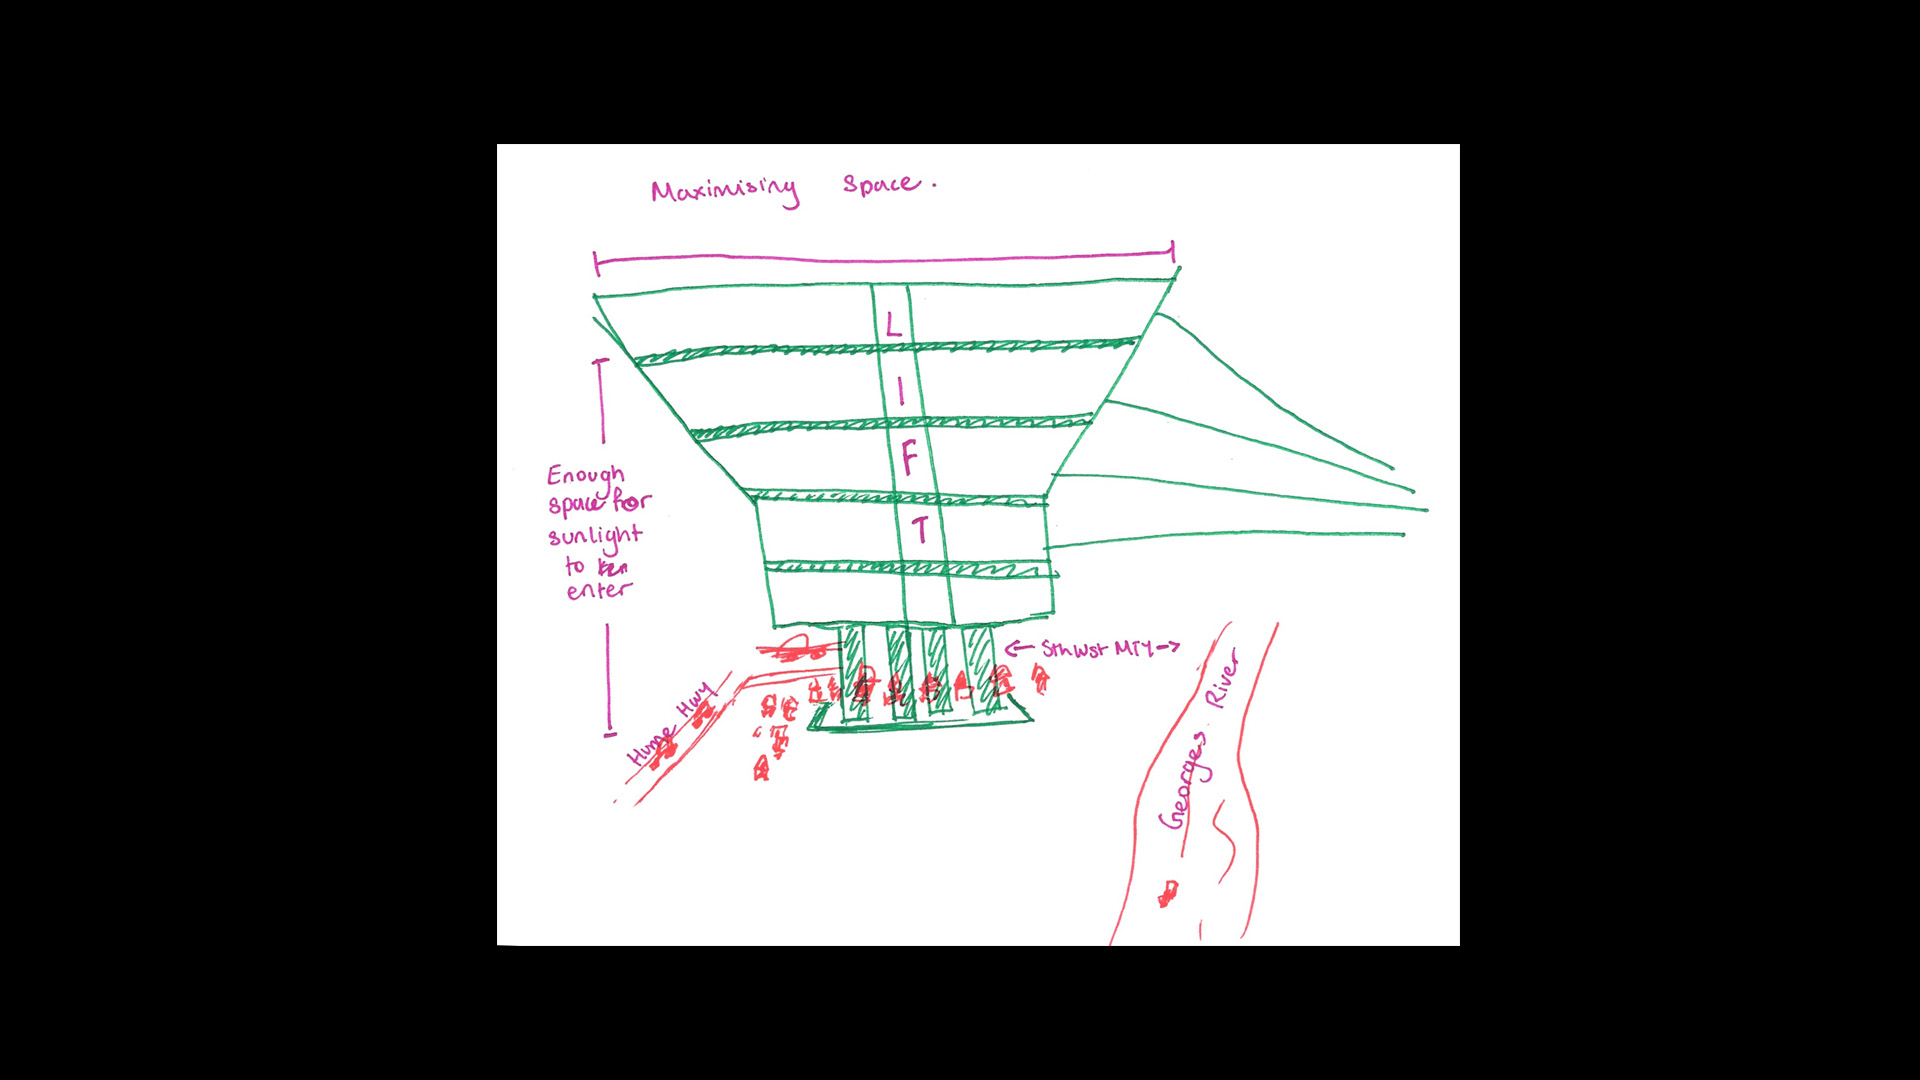 Maximising Space.
L
I
F
T
Enough
space for
sunlight
to
enter
← Sth Wst MTY →
Hume Hwy
Georges River